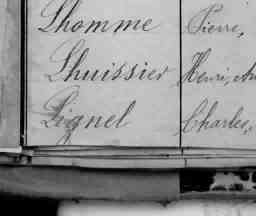 Lhomme Pierre,
Lhuissier Henri, Au
Lignel Charles,